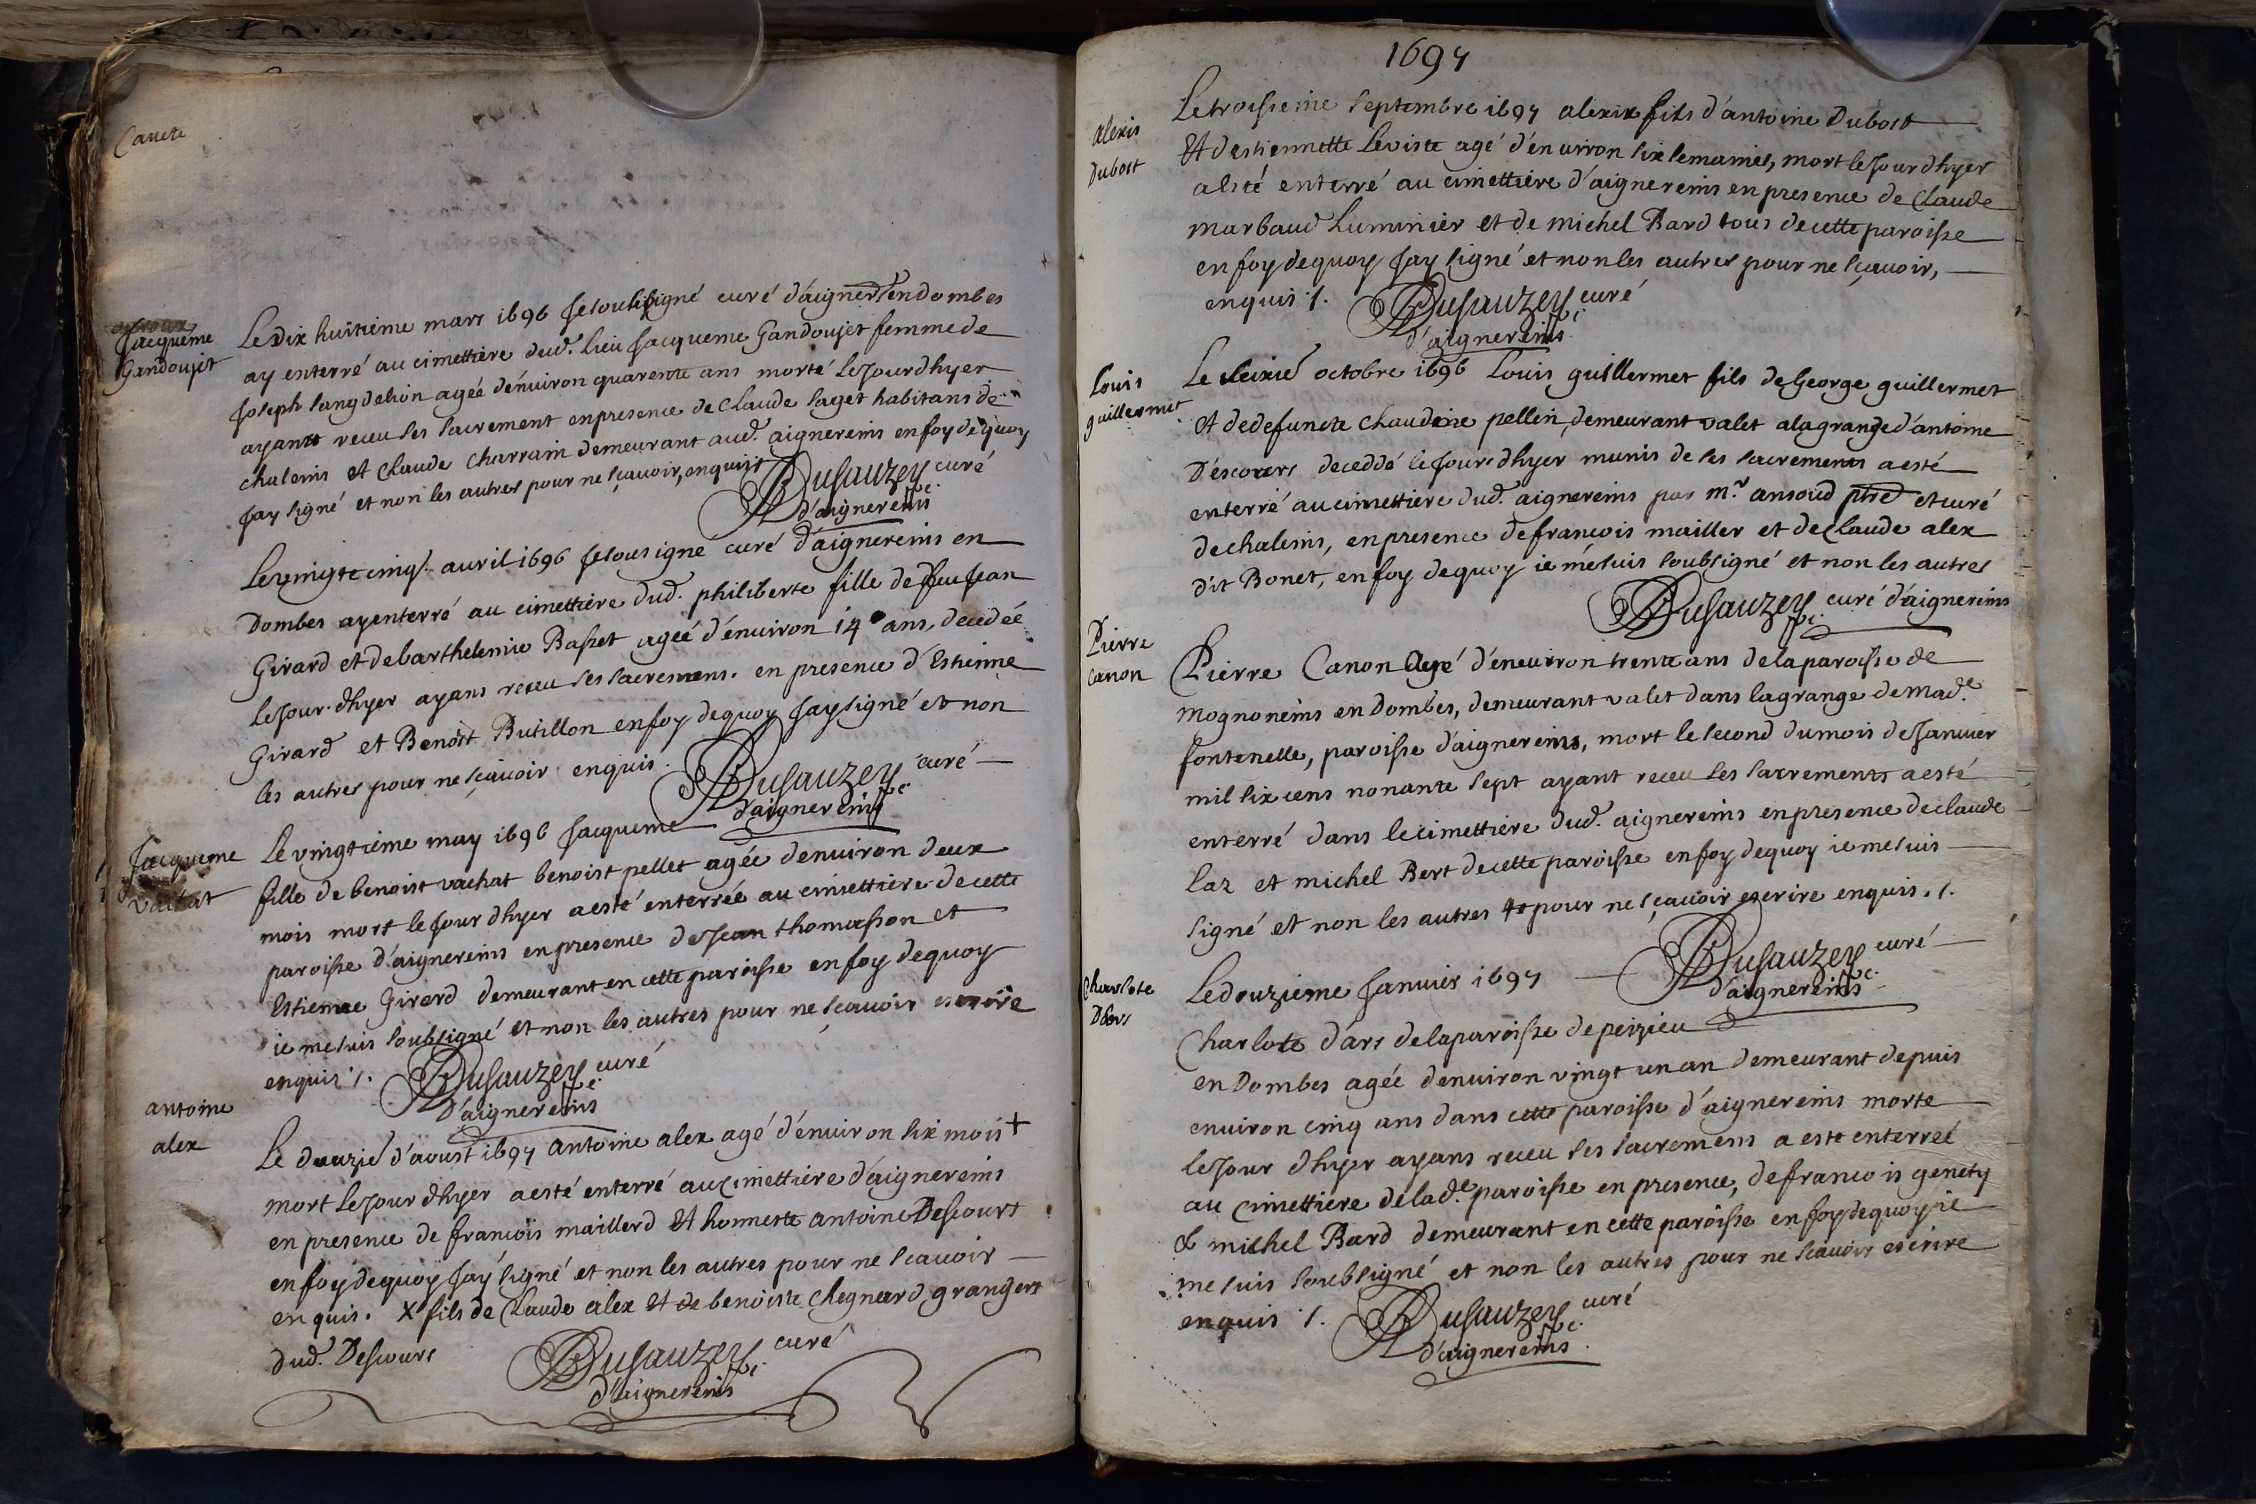 Cavete
Jacqueme
Gandoujet
Le dix huitième mars 1696 Je soulsigné curé d'aigner. en dombes
ay enterré au cimettiere dud. lieu Jacqueme Gandoujet femme de
Joseph sangdelion agée d'enuiron quarente ans morte le Jour dhyer
ayant receu ses sacrement en presence de Claude saget habitans de
chaleins et Claude Charrain demeurant aud. aignereins en foy de quoy
Jay signé et non les autres pour ne sçauoir, enquis
DuSauzey curé
d'aignereins
Le vingte cinq. avril 1696 Je sousigne curé d'aignereins en
Dombes ay enterré au cimettiere dud. philiberte fille de feu Jean
Girard et de barthelemie Basset agée d'enuiron 14 ans, decedée
le Jour dhyer ayans receu ses sacremens. en presence d'Estienne
Girard et Benoît Butillon en foy de quoy Jay signé et non
les autres pour ne sçauoir enquis.
DuSauzey curé
d'aignereins
Jacqueme
vachat
Le vingtième may 1696 Jacqueme
fille de benoist vachat benoist pellet agée denuiron deux
mois mort le Jour dhyer a esté enterrée au cimettiere de cette
paroisse d'aignereins en presence de Jean thomasson et
Estienne Girard demeurant en cette paroisse en foy de quoy
ie me suis soubsigné et non les autres pour ne sçauoir escrire
enquis /.
DuSauzey curé
d'aignereins
antoine
alex
Le douzie d'aoust 1697 antoine alex agé d'enuiron six mois +
mort le Jour dhyer a esté enterré au cimettiere d'aignereins
en presence de francois maillerd et honneste antoine Descours
en foy de quoy Jay signé et non les autres pour ne scauoir
enquis. X fils de Claude alex et de benoiste Chegnard grangers
dud. Descours
DuSauzey curé
d'aignereins
1697
alexis
Dubost
Le troisieme septembre 1697 alexix fils d'antoine Dubost
Et d'estiennette Leviste agé d'enuiron six semaines, mort le Jour dhyer
a esté enterré au cimettiere d'aignereins en presence de Claude
marbaud Luminier et de michel Bard tous de cette paroisse
en foy de quoy Jay signé et non les autres pour ne sçauoir,
enquis /.
DuSauzey curé
d'aignereins
Louis
guillermet
Le seizie octobre 1696 Louis guillermet fils de George guillermet
et de defuncte Chaudine pellin, demeurant valet a la grange d'antoine
D'escours deceddé le Jour dhyer munis de ses sacrements a esté
enterré au cimettiere dud. aignereins par mr. ansoud ptre et curé
de chaleins, en presence de francois mailler et de Claude alex
dit Bonet, en foy de quoy ie mesuis soubsigné et non les autres
DuSauzey curé d'aignereins
Pierre
canon
Pierre Canon Agé d'eneuiron trente ans de la paroisse de
Mognoneins en Dombes, demeurant valet dans la grange de Made
fontenelle, paroisse d'aignereins, mort le second du mois de Januier
mil six cens nonante sept ayant receu ses sacrements a esté
enterré dans le cimettiere dud. aignereins en presence de claude
Laz et michel Bert de cette paroisse en foy de quoy ie mesuis
signé et non les autres pour ne sçauoir escrire enquis. /.
DuSauzey curé
d'aignereins
Charlote
Dars
Le douzieme Januier 1697
Charlote d'ars de la paroisse de peizieu
en Dombes agée denuiron vingt un an demeurant depuis
enuiron cinq ans dans cette paroisse d'aignereins morte
le Jour dhyer ayans receu ses sacremens a este enterreé
au cimettiere de lade paroisse en presence, de francois genety
& michel Bard demeurant en cette paroisse en foy de quoy ie
me suis soubsigné et non les autres pour ne scauoir escrire
enquis /.
DuSauzey curé
d'aignereins